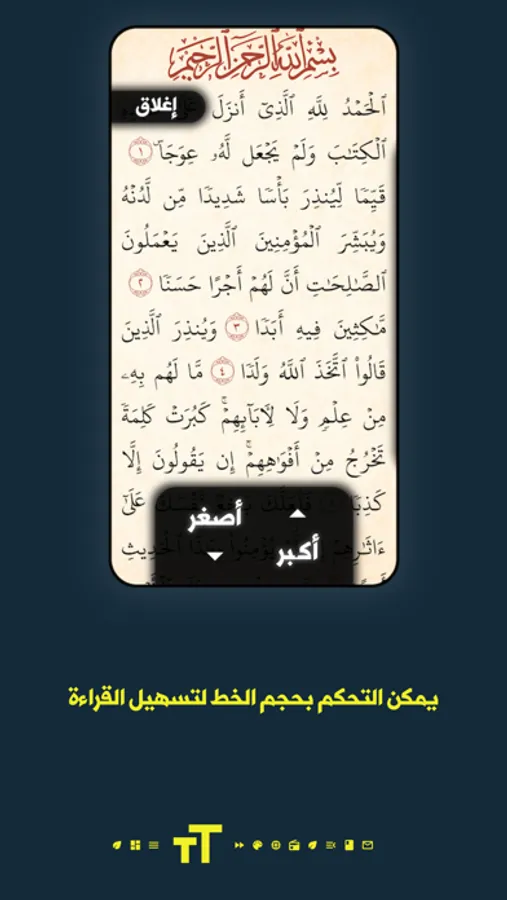 بِسْمِ ٱللَّهِ ٱلرَّحْمَٰنِ ٱلرَّحِيمِ
إغلاق
ٱلْحَمْدُ لِلَّهِ ٱلَّذِىٓ أَنزَلَ
ٱلْكِتَٰبَ وَلَمْ يَجْعَل لَّهُۥ عِوَجَاۜ ١
قَيِّمًا لِّيُنذِرَ بَأْسًا شَدِيدًا مِّن لَّدُنْهُ
وَيُبَشِّرَ ٱلْمُؤْمِنِينَ ٱلَّذِينَ يَعْمَلُونَ
ٱلصَّٰلِحَٰتِ أَنَّ لَهُمْ أَجْرًا حَسَنًا ٢
مَّٰكِثِينَ فِيهِ أَبَدًا ٣ وَيُنذِرَ ٱلَّذِينَ
قَالُوا۟ ٱتَّخَذَ ٱللَّهُ وَلَدًا ٤ مَّا لَهُم بِهِۦ
مِنْ عِلْمٍ وَلَا لِـَٔابَآئِهِمْ ۚ كَبُرَتْ كَلِمَةً
تَخْرُجُ مِنْ أَفْوَٰهِهِمْ ۚ إِن يَقُولُونَ إِلَّا
كَذِبًا فَلَعَلَّكَ بَٰخِعٌ نَّفْسَكَ عَلَىٰٓ
ءَاثَٰرِهِمْ إِن لَّمْ يُؤْمِنُوا۟ بِهَٰذَا ٱلْحَدِيثِ
أصغر
أكبر
يمكن التحكم بحجم الخط لتسهيل القراءة
TT